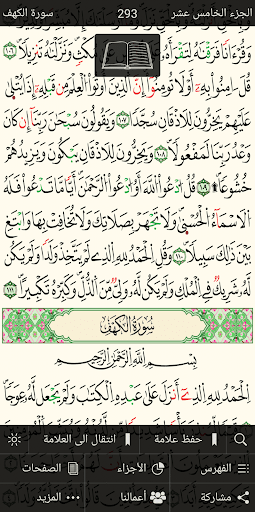 الجزء الخامس عشر 293 سورة الكهف
وَقُرْءَانًا فَرَقْنَٰهُ لِتَقْرَأَهُۥ وَنَزَّلْنَٰهُ تَنزِيلًا ١٠٦
قُلْ ءَامِنُوا۟ بِهِۦٓ أَوْ لَا تُؤْمِنُوٓا۟ إِنَّ ٱلَّذِينَ أُوتُوا۟ ٱلْعِلْمَ مِن قَبْلِهِۦٓ إِذَا يُتْلَىٰ
عَلَيْهِمْ يَخِرُّونَ لِلْأَذْقَانِ سُجَّدًا ١٠٧ وَيَقُولُونَ سُبْحَٰنَ رَبِّنَآ إِن كَانَ
وَعْدُ رَبِّنَا لَمَفْعُولًا ١٠٨ وَيَخِرُّونَ لِلْأَذْقَانِ يَبْكُونَ وَيَزِيدُهُمْ
خُشُوعًا ١٠٩ قُلِ ٱدْعُوا۟ ٱللَّهَ أَوِ ٱدْعُوا۟ ٱلرَّحْمَٰنَ أَيًّا مَّا تَدْعُوا۟ فَلَهُ
ٱلْأَسْمَآءُ ٱلْحُسْنَىٰ وَلَا تَجْهَرْ بِصَلَاتِكَ وَلَا تُخَافِتْ بِهَا وَٱبْتَغِ
بَيْنَ ذَٰلِكَ سَبِيلًا ١١٠ وَقُلِ ٱلْحَمْدُ لِلَّهِ ٱلَّذِى لَمْ يَتَّخِذْ وَلَدًا وَلَمْ يَكُن
لَّهُۥ شَرِيكٌ فِى ٱلْمُلْكِ وَلَمْ يَكُن لَّهُۥ وَلِىٌّ مِّنَ ٱلذُّلِّ وَكَبِّرْهُ تَكْبِيرًۢا ١١١
سُورَةُ الكَهْفِ
بِسْمِ ٱللَّهِ ٱلرَّحْمَٰنِ ٱلرَّحِيمِ
ٱلْحَمْدُ لِلَّهِ ٱلَّذِىٓ أَنزَلَ عَلَىٰ عَبْدِهِ ٱلْكِتَٰبَ وَلَمْ يَجْعَل لَّهُۥ عِوَجَا
حفظ علامة انتقال الى العلامة
الفهرس الأجزاء الصفحات
مشاركة أعمالنا المزيد